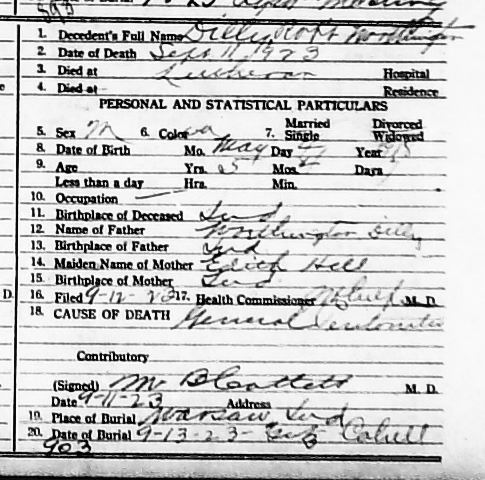 593
1. Decedent's Full Name Dilly, Robt Worthington
2. Date of Death Sept. 11, 1923
3. Died at Lutheran Hospital
4. Died at Residence
PERSONAL AND STATISTICAL PARTICULARS
5. Sex M 6. Color 7. Married Single Divorced Widowed
8. Date of Birth Mo. May Day Year
9. Age Yrs. 5 Mos. Days
Less than a day Hrs. Min.
10. Occupation —
11. Birthplace of Deceased Ind
12. Name of Father Worthington Dilly
13. Birthplace of Father Ind
14. Maiden Name of Mother Edith Hell
15. Birthplace of Mother Ind
D. 16. Filed 9-12-23 17. Health Commissioner M. D.
18. CAUSE OF DEATH General
Contributory
(Signed) M. D.
Date 9-11-23 Address
19. Place of Burial Warsaw Ind
20. Date of Burial 9-13-23
903